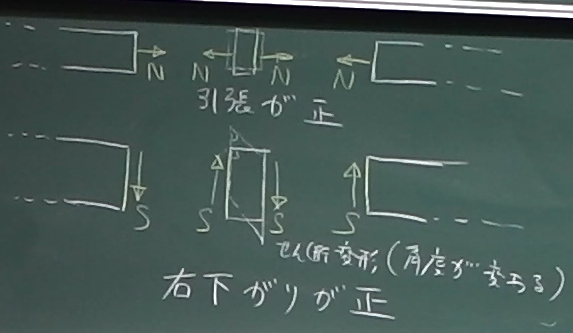 N N N N
引張が正
S S S S
せん断変形(角度が変わる)
右下がりが正